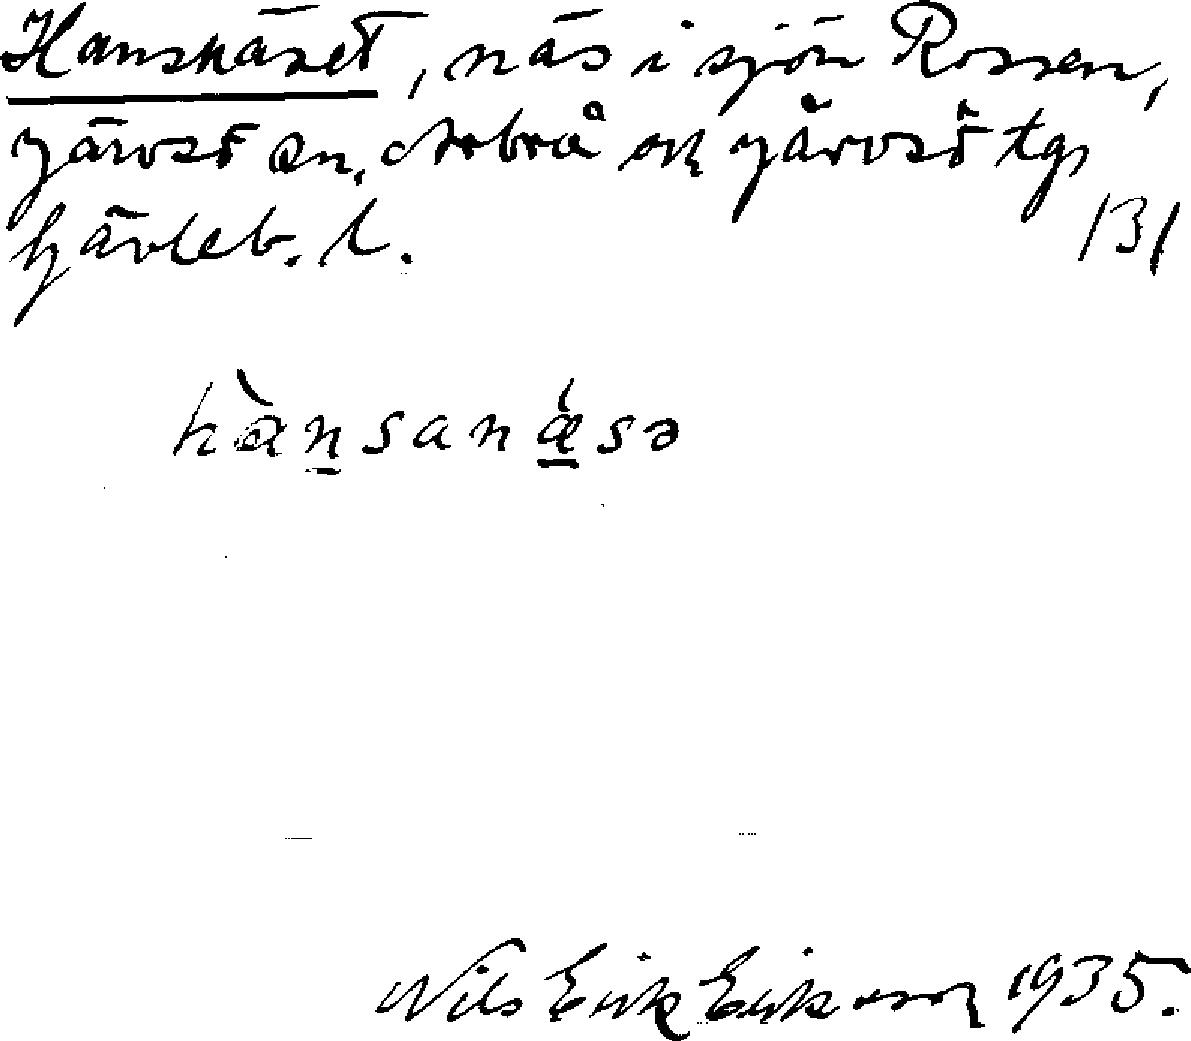 Hansnäset, näs i sjön Rossen,
Järvsö sn, Arbrå ock Järvsö tg,
Gävleb. l. 131
hànsanǽsə
Nils Erik Eriksson 1935.